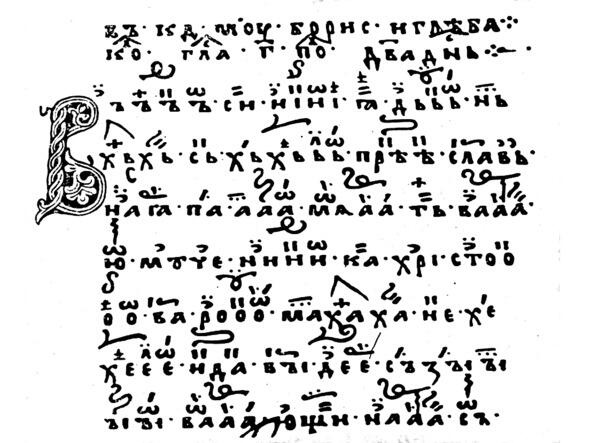 въ · кд · моу · борис · и глѣба ·:·
ко · гла · г · по · дваднь ·:·
Въ ъ ъ ъ · си · нıнı · ꙗ · дььь · нь
хъхъ · сь · хьхььь · прѣѣ · славь ·
наꙗ · па · ааа · мѧаа · ть · вааа ·
ю · моуче · нини · ка · хрı · стоо
оо · ва · рооо · махаха · не · хе
хеее · нда · въıдее · съзъıъı
ъıъı · вааа · ющи · нааа · съ ·